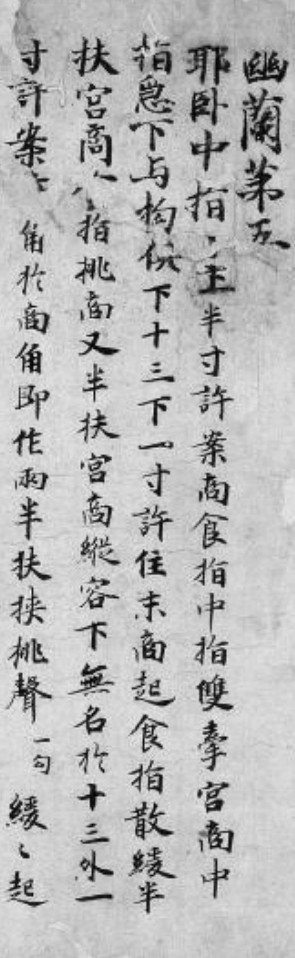 幽蘭第五
耶卧中指〻上半寸許案商食指中指雙牽宮商中
指急下与拘俱下十三下一寸許住末商起食指散緩半
扶宮商八〻指挑商又半扶宮商縱容下無名於十三外一
寸許案
角於商角即作兩半扶挾挑聲一句緩〻起